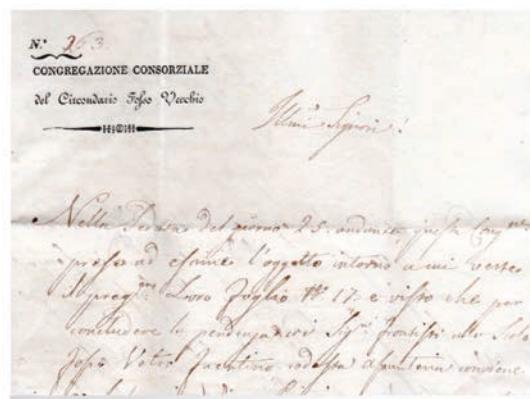 N.° 263.
CONGREGAZIONE CONSORZIALE
del Circondario Fosso Vecchio
Illmi Signori!
Nella Seduta del giorno 25. andante, questa Cong.ne
prese ad esame l'oggetto intorno a cui verte
il preg. Loro Foglio N° 17. e visto che per
concludere la pendenza coi Sig.ri frontisti allo Scolo
Fosso Vetro Faentino codesta Assunteria conviene